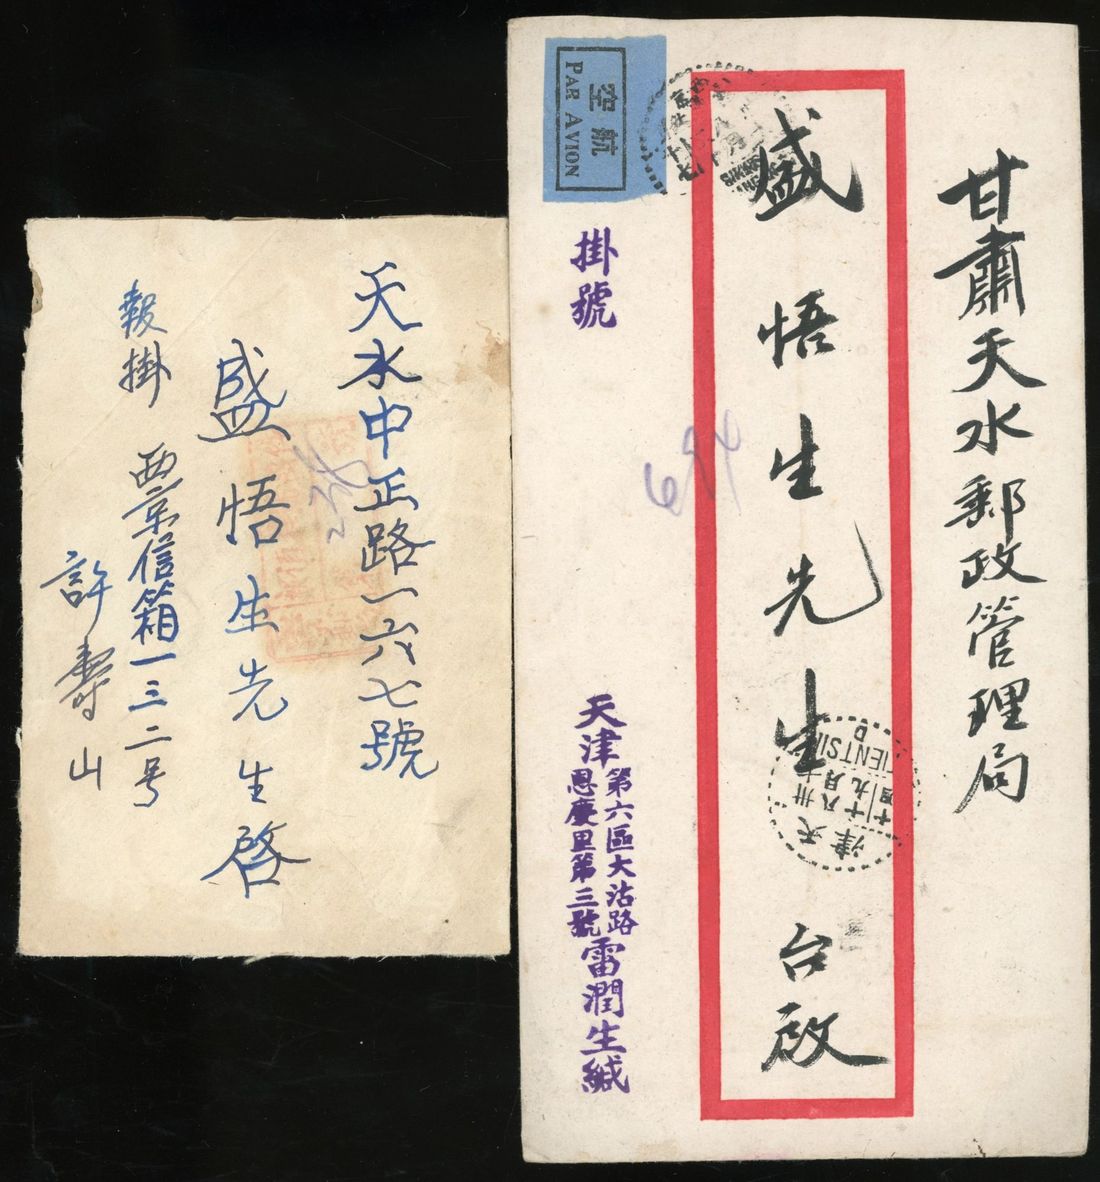 天水中正路一六七號
盛悟生先生啓
報掛 西京信箱一三二号
許壽山
空航
PAR AVION
掛號
甘肅天水郵政管理局
盛悟生先生台啟
694
天津
第六區大沽路
恩慶里第三號
雷潤生緘
天津
卅八年九月十
TIENTSIN
D